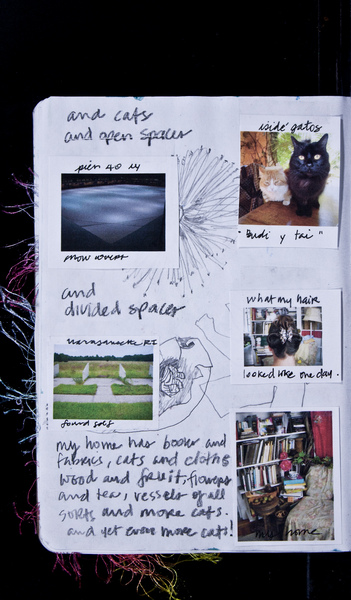 and cats
and open spaces
pies 40 14
snow covers
and
divided spaces
Narragansett RI
found sofs
my home has books and
fabrics, cats and cloths
wood and fruit, flowers
and tea, vessels of all
sorts and more cats.
and yet even more cats!
iside' gatos
"Budi y tai"
what my hair
looked like one day.
my home